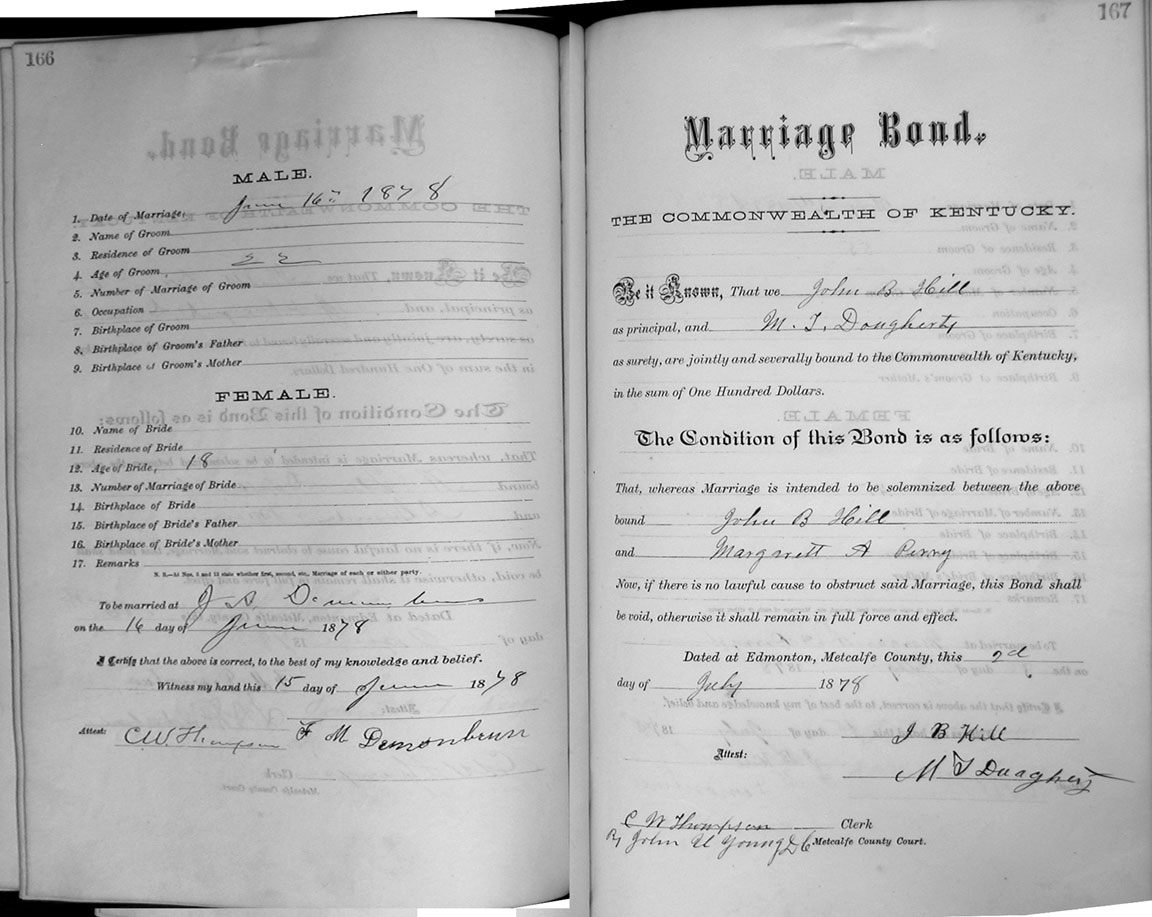 166
MALE.
1. Date of Marriage, June 16th 1878
2. Name of Groom
3. Residence of Groom
4. Age of Groom, 22
5. Number of Marriage of Groom
6. Occupation
7. Birthplace of Groom
8. Birthplace of Groom's Father
9. Birthplace of Groom's Mother
FEMALE.
10. Name of Bride
11. Residence of Bride
12. Age of Bride, 18
13. Number of Marriage of Bride
14. Birthplace of Bride
15. Birthplace of Bride's Father
16. Birthplace of Bride's Mother
17. Remarks
N. B.—At Nos. 5 and 13 state whether first, second, etc., Marriage of each or either party.
To be married at J A Demumbruns
on the 16 day of June 1878
I Certify that the above is correct, to the best of my knowledge and belief.
Witness my hand this 15 day of June 1878
Attest: C W Thompson F M Demonbrunn
167
Marriage Bond.
THE COMMONWEALTH OF KENTUCKY.
Be it Known, That we John B Hill
as principal, and M. T. Daugherty
as surety, are jointly and severally bound to the Commonwealth of Kentucky,
in the sum of One Hundred Dollars.
The Condition of this Bond is as follows:
That, whereas Marriage is intended to be solemnized between the above
bound John B Hill
and Margarett A Perry
Now, if there is no lawful cause to obstruct said Marriage, this Bond shall
be void, otherwise it shall remain in full force and effect.
Dated at Edmonton, Metcalfe County, this 2d
day of July 1878
J B Hill
Attest:
M T Daugherty
C W Thompson Clerk
By John U Young D C Metcalfe County Court.